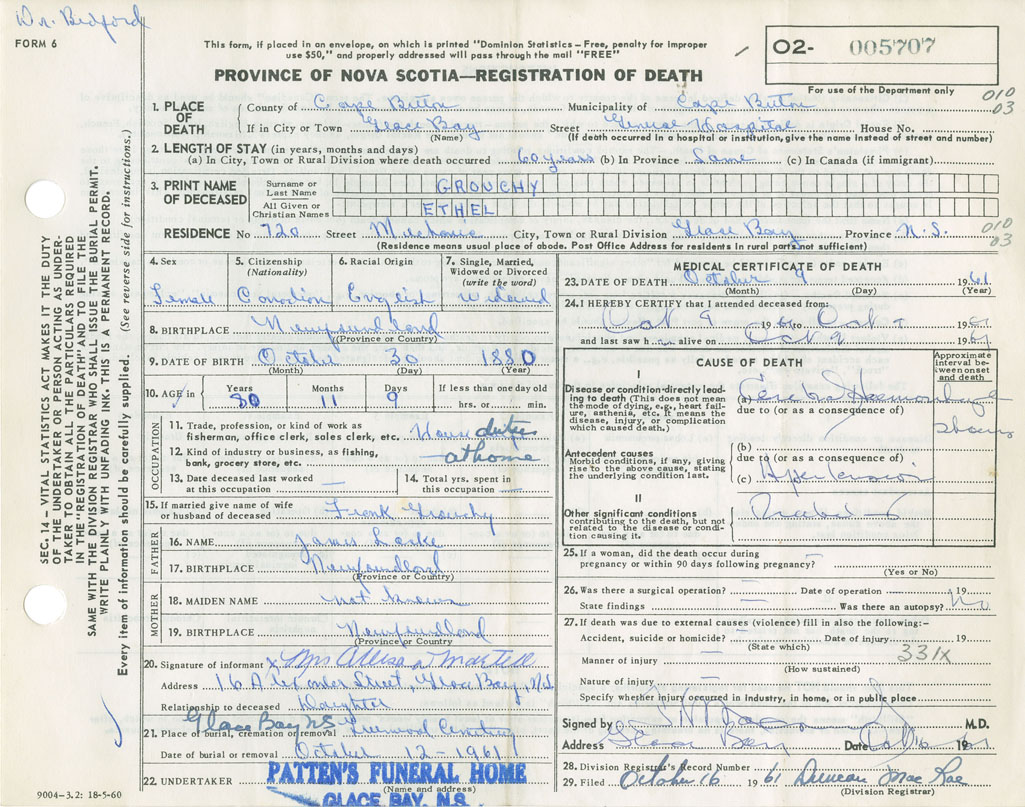 FORM 6
This form, if placed in an envelope, on which is printed "Dominion Statistics – Free, penalty for improper
use $50," and properly addressed will pass through the mail "FREE"
O2- 005707
PROVINCE OF NOVA SCOTIA—REGISTRATION OF DEATH
For use of the Department only
010
03
1. PLACE OF DEATH
County of Cape Breton Municipality of Cape Breton
If in City or Town Glace Bay Street General Hospital House No.
(Name) (If death occurred in a hospital or institution, give the name instead of street and number)
2. LENGTH OF STAY (in years, months and days)
(a) In City, Town or Rural Division where death occurred 60 years (b) In Province Same (c) In Canada (if immigrant)
3. PRINT NAME OF DECEASED
Surname or Last Name GROUCHY
All Given or Christian Names ETHEL
RESIDENCE No 720 Street City, Town or Rural Division Glace Bay Province N.S.
010
03
(Residence means usual place of abode. Post Office Address for residents in rural parts not sufficient)
4. Sex
Female
5. Citizenship (Nationality)
Canadian
6. Racial Origin
English
7. Single, Married, Widowed or Divorced (write the word)
Widowed
8. BIRTHPLACE Newfoundland
(Province or Country)
9. DATE OF BIRTH October 30 1880
(Month) (Day) (Year)
10. AGE in
Years 80 Months 11 Days 9 If less than one day old
hrs. or min.
OCCUPATION
11. Trade, profession, or kind of work as
fisherman, office clerk, sales clerk, etc. House duties
12. Kind of industry or business, as fishing,
bank, grocery store, etc. at home
13. Date deceased last worked
at this occupation —
14. Total yrs. spent in
this occupation —
15. If married give name of wife
or husband of deceased Frank Grouchy
FATHER
16. NAME James
17. BIRTHPLACE Newfoundland
(Province or Country)
MOTHER
18. MAIDEN NAME not known
19. BIRTHPLACE Newfoundland
(Province or Country)
20. Signature of informant x Mrs Martell
Address 16 Alexander Street, Glace Bay, N.S.
Relationship to deceased Daughter
Glace Bay NS
21. Place of burial, cremation or removal Cemetery
Date of burial or removal October 12 - 1961
22. UNDERTAKER PATTEN'S FUNERAL HOME
(Name and address)
GLACE BAY, N.S.
9004–3.2: 18-5-60
MEDICAL CERTIFICATE OF DEATH
23. DATE OF DEATH October 9 1961
(Month) (Day) (Year)
24. I HEREBY CERTIFY that I attended deceased from:
Oct 9 1961 to Oct 9 1961
and last saw h alive on Oct 9 1961
CAUSE OF DEATH
Approximate interval between onset and death
I
Disease or condition directly leading to death (This does not mean the mode of dying, e.g., heart failure, asthenia, etc. It means the disease, injury, or complication which caused death.)
(a) Hemorrhage
due to (or as a consequence of)
hours
Antecedent causes
Morbid conditions, if any, giving rise to the above cause, stating the underlying condition last.
(b)
due to (or as a consequence of)
(c) Hypertension
II
Other significant conditions
contributing to the death, but not related to the disease or condition causing it.
25. If a woman, did the death occur during
pregnancy or within 90 days following pregnancy? —
(Yes or No)
26. Was there a surgical operation? — Date of operation — 19
State findings — Was there an autopsy? No
27. If death was due to external causes (violence) fill in also the following:-
Accident, suicide or homicide? — Date of injury 19
(State which)
331X
Manner of injury —
(How sustained)
Nature of injury —
Specify whether injury occurred in industry, in home, or in public place
Signed by M.D.
Address Glace Bay Date Oct 16 1961
28. Division Registrar's Record Number
29. Filed October 16 1961 Duncan MacRae
(Division Registrar)
SEC. 14 – VITAL STATISTICS ACT MAKES IT THE DUTY
OF THE UNDERTAKER OR PERSON ACTING AS UNDER-
TAKER TO OBTAIN ALL THE PARTICULARS REQUIRED
IN THE "REGISTRATION OF DEATH" AND TO FILE THE
SAME WITH THE DIVISION REGISTRAR WHO SHALL ISSUE THE BURIAL PERMIT.
WRITE PLAINLY WITH UNFADING INK. THIS IS A PERMANENT RECORD.
Every item of information should be carefully supplied. (See reverse side for instructions.)